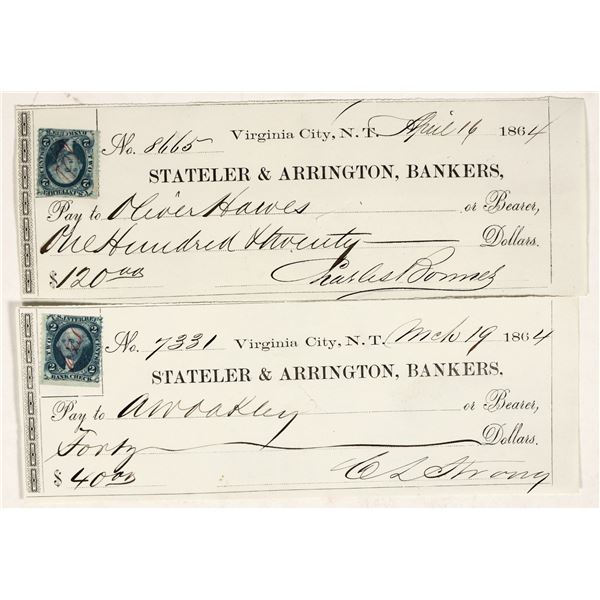 No. 8665 Virginia City, N.T. April 16 1864
STATELER & ARRINGTON, BANKERS,
Pay to Oliver Hawes or Bearer,
One Hundred & twenty Dollars.
$120.00 Charles Bonner
2 U.S. INTER. REV. 2
2 BANK CHECK 2
No. 7331 Virginia City, N.T. Mch 19 1864
STATELER & ARRINGTON, BANKERS,
Pay to A W Oakley or Bearer,
Forty Dollars.
$40.00 C L Strong